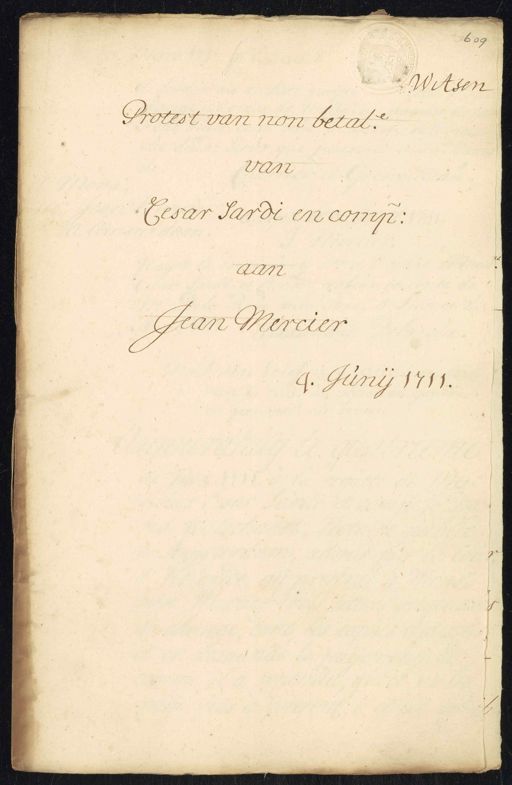 609
Witsen
Protest van non betal.e
van
Cesar Sardi en comp:
aan
Jean Mercier
4. Junij 1711.